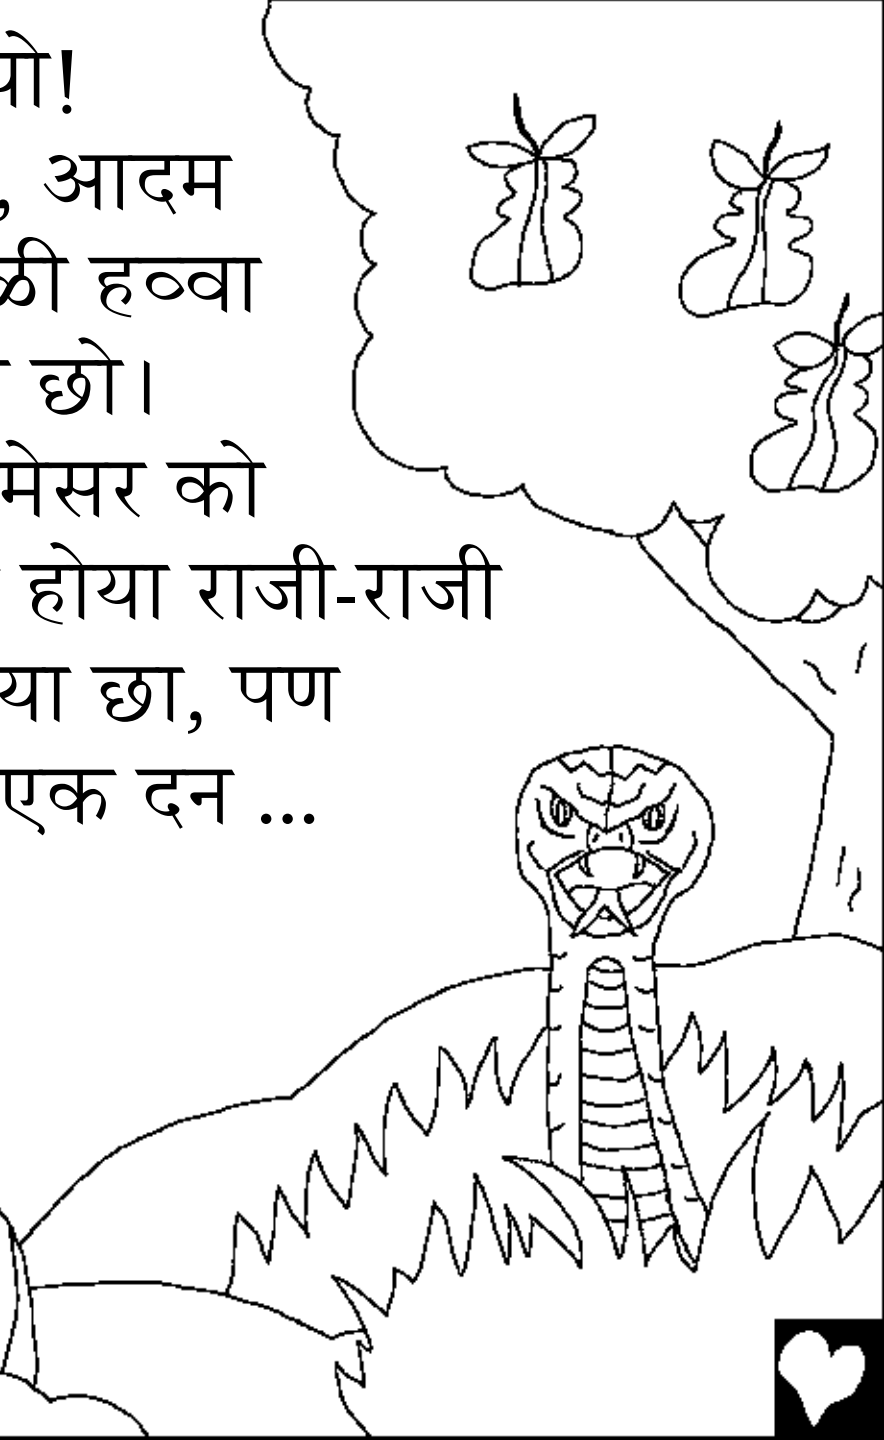 यो!
, आदम
ळी हव्वा
छो।
मेसर को
होया राजी-राजी
या छा, पण
एक दन ...